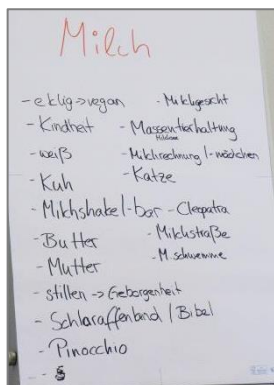 Milch
- eklig → vegan
- Kindheit
- weiß
- Kuh
- Milchshake/-bar
- Butter
- Mutter
- stillen → Geborgenheit
- Schlaraffenland / Bibel
- Pinocchio
- Milchgesicht
- Massentierhaltung
- Milchrechnung/-mädchen
- Katze
- Cleopatra
- Milchstraße
- M.schwemme